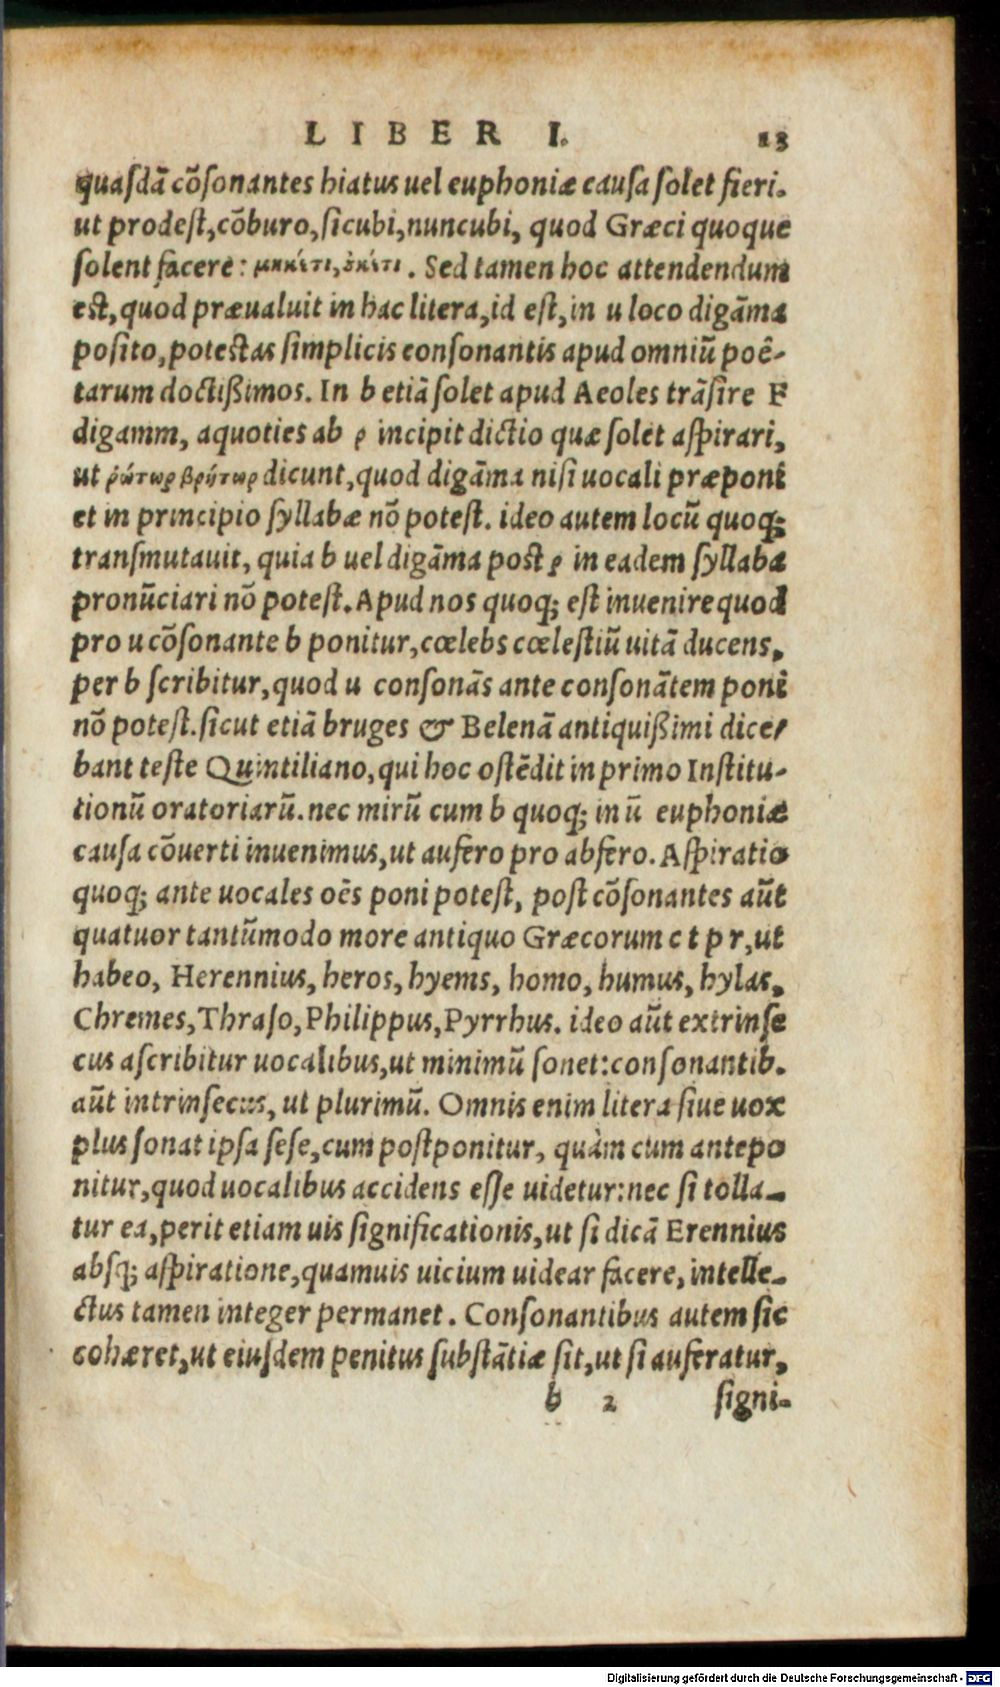 LIBER I. 13
quaſdã cõſonantes hiatus uel euphoniæ cauſa ſolet fieri.
ut prodeſt, cõburo, ſicubi, nuncubi, quod Græci quoque
ſolent facere: μηκέτι, ȣ̓κέτι. Sed tamen hoc attendendum
est, quod præualuit in hac litera, id eſt, in u loco digãma
poſito, poteſtas ſimplicis conſonantis apud omniũ poê-
tarum doctißimos. In b etiã ſolet apud Aeoles trãſire F
digamm, aquoties ab ρ incipit dictio quæ ſolet aſpirari,
ut ῥήτωρ βρήτωρ dicunt, quod digãma niſi uocali præponi
et in principio ſyllabæ nõ poteſt. ideo autem locũ quoq;
tranſmutauit, quia b uel digãma post ρ in eadem ſyllaba
pronũciari nõ poteſt. Apud nos quoq; eſt inuenire quod
pro u cõſonante b ponitur, cœlebs cœleſtiũ uitã ducens,
per b ſcribitur, quod u conſonãs ante conſonãtem poni
nõ poteſt. ſicut etiã bruges & Belenã antiquißimi dice-
bant teſte Quintiliano, qui hoc oſtẽdit in primo Inſtitu-
tionũ oratoriarũ. nec mirũ cum b quoq; in ũ euphoniæ
cauſa cõuerti inuenimus, ut aufero pro abfero. Aſpiratio
quoq; ante uocales oẽs poni poteſt, poſt cõſonantes aũt
quatuor tantũmodo more antiquo Græcorum c t p r, ut
habeo, Herennius, heros, hyems, homo, humus, hylas,
Chremes, Thraſo, Philippus, Pyrrhus. ideo aũt extrinſe
cus aſcribitur uocalibus, ut minimũ ſonet: conſonantib.
aũt intrinſecus, ut plurimũ. Omnis enim litera ſiue uox
plus ſonat ipſa ſeſe, cum poſtponitur, quàm cum antepo
nitur, quod uocalibus accidens eſſe uidetur: nec ſi tolla-
tur ea, perit etiam uis ſignificationis, ut ſi dicã Erennius
abſq; aſpiratione, quamuis uicium uidear facere, intelle-
ctus tamen integer permanet. Conſonantibus autem ſic
cohæret, ut eiuſdem penitus ſubſtãtiæ ſit, ut ſi auferatur,
b 2 ſigni-
Digitalisierung gefördert durch die Deutsche Forschungsgemeinschaft - DFG